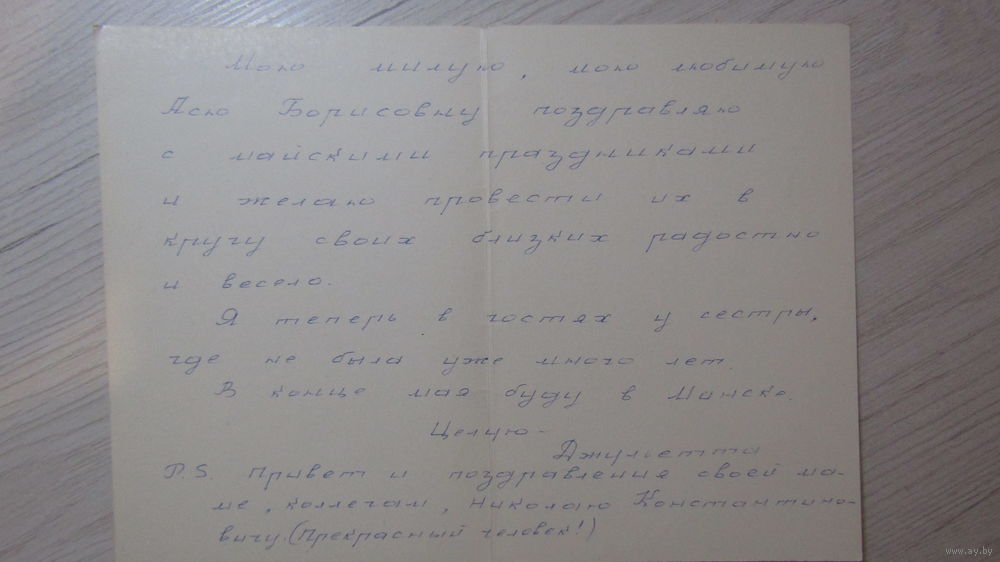 Мою милую, мою любимую
Асю Борисовну поздравляю
с майскими праздниками
и желаю провести их в
кругу своих близких радостно
и весело.
Я теперь в гостях у сестры,
где не была уже много лет.
В конце мая буду в Минске.
Целую -
Джульетта
P.S. Привет и поздравления своей ма-
ме, коллегам, Николаю Константино-
вичу. (Прекрасный человек!)
www.ay.by